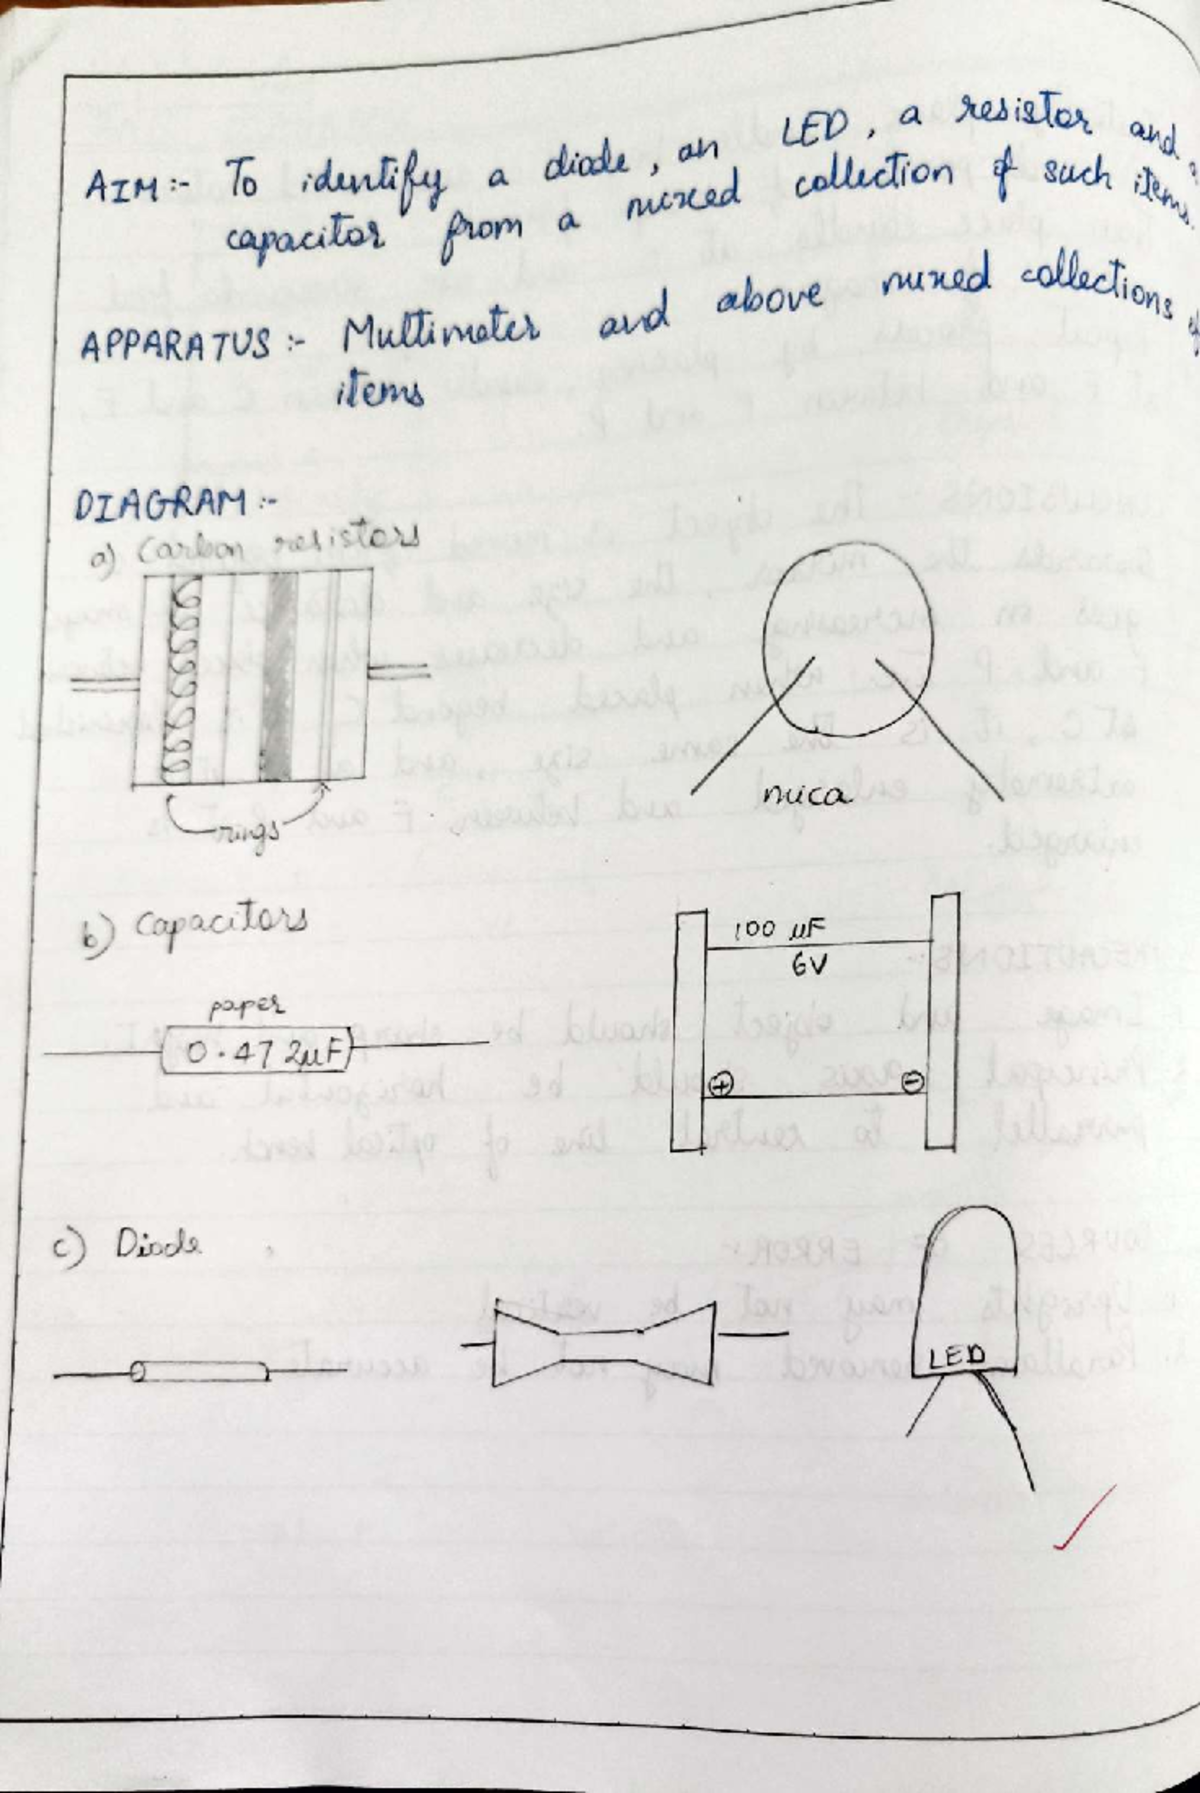 AIM:- To identify a diode, an LED, a resistor and a
capacitor from a mixed collection of such items.
APPARATUS:- Multimeter and above mixed collections of
items
DIAGRAM:-
a) Carbon resistors
rings
mica
b) Capacitors
paper
0.47 2μF
100 μF
6V
+ -
c) Diode
LED